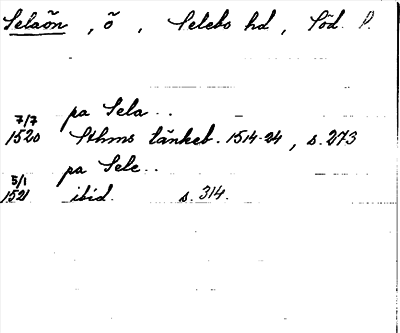 Selaön, ö, Selebo hd, Söd. P.
pa Sela..
7/7
1520 Sthms tänkeb. 1514-24, s. 273
pa Sele..
5/1
1521 ibid. s. 314.